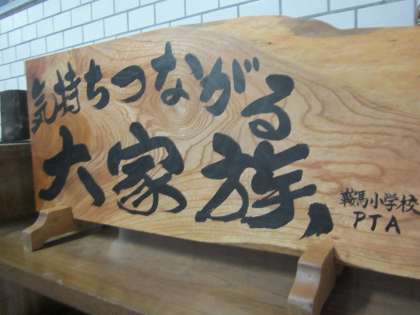 気持ちつながる
大家族
鞍馬小学校
PTA